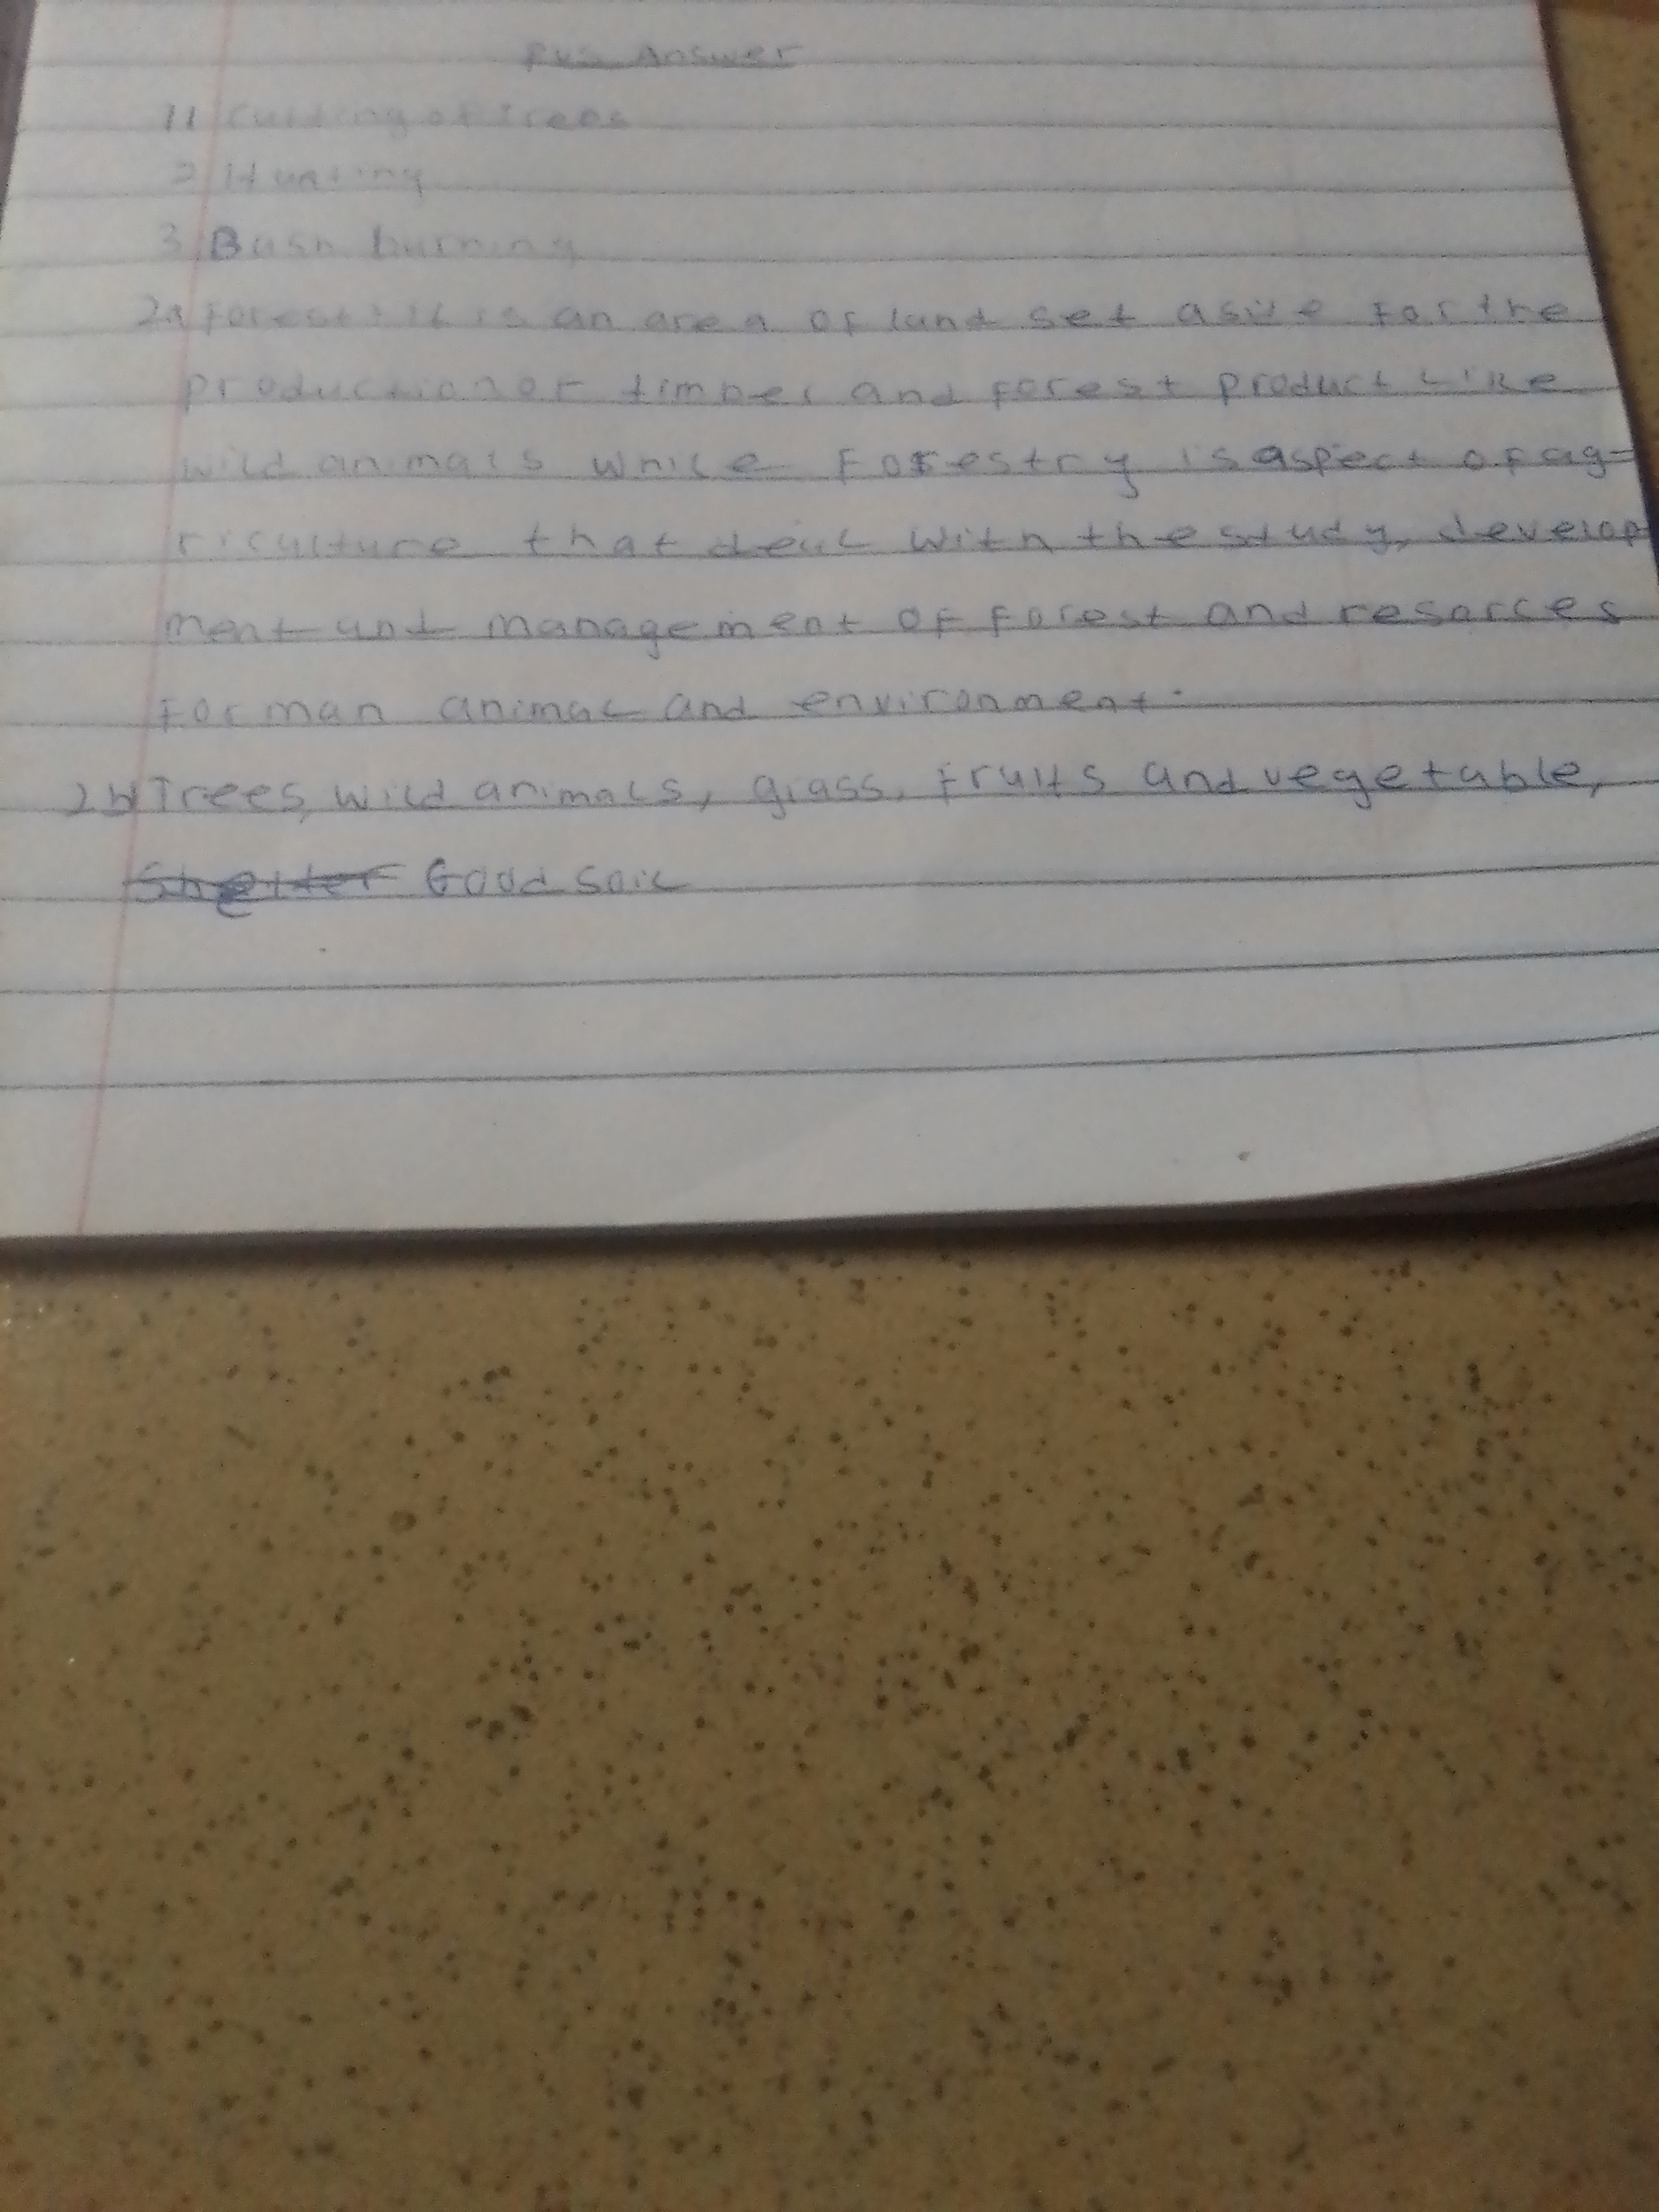 PVS Answer
1) Cutting of Trees
2 Hunting
3 Bush burning
2a Forest: It is an area of land set aside for the
production of timber and forest product Like
wild animals while Forestry is aspect of ag-
riculture that deal with the study, develop
ment and management of forest and resorces
For man animal and environment.
2b Trees, wild animals, grass, fruits and vegetable,
Shelter Good soil